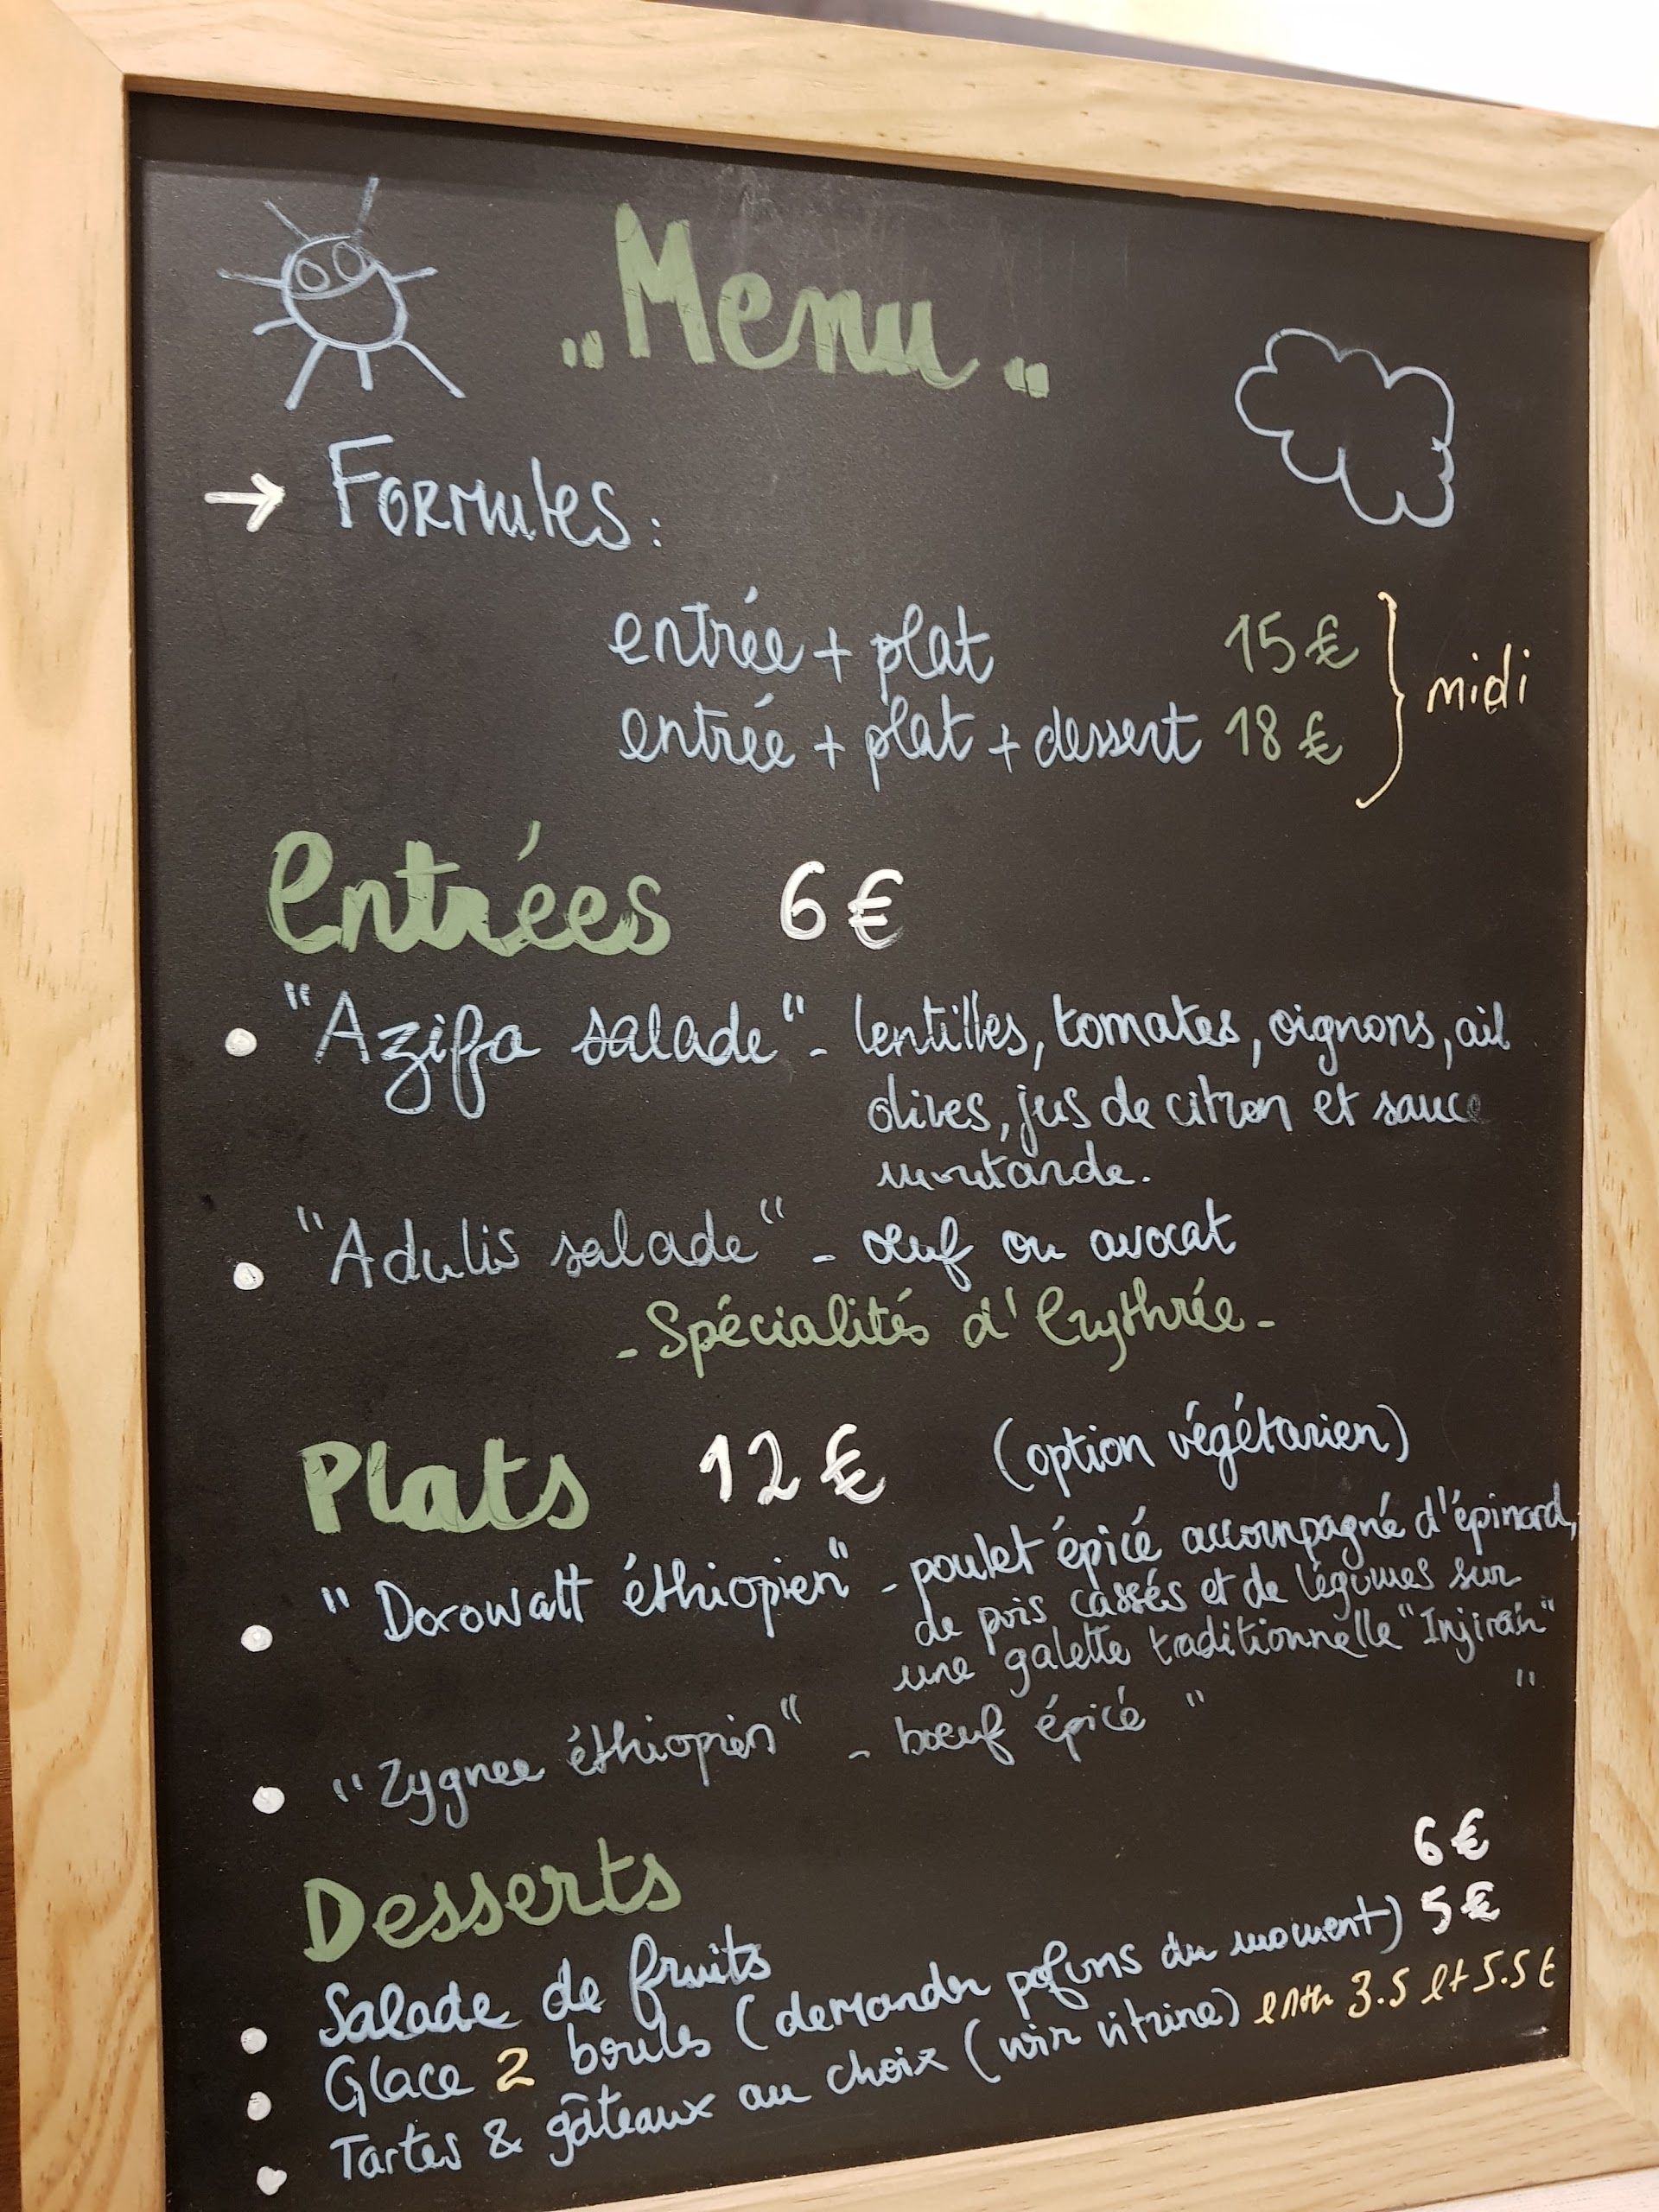 "Menu"
→ Formules :
entrée + plat 15 €
entrée + plat + dessert 18 €
midi
Entrées 6 €
• "Azifa salade" - lentilles, tomates, oignons, ail
olives, jus de citron et sauce
moutarde.
• "Adulis salade" - œuf ou avocat
- Spécialités d'Erythrée -
Plats 12 € (option végétarien)
• "Dorowatt éthiopien" - poulet épicé accompagné d'épinard,
de pois cassés et de légumes sur
une galette traditionnelle "Injirah"
• "Zygnee éthiopien" - bœuf épicé " "
Desserts
• Salade de fruits 6 €
• Glace 2 boules (demander pafums du moment) 5 €
• Tartes & gâteaux au choix (voir vitrine) entre 3.5 et 5.5 €